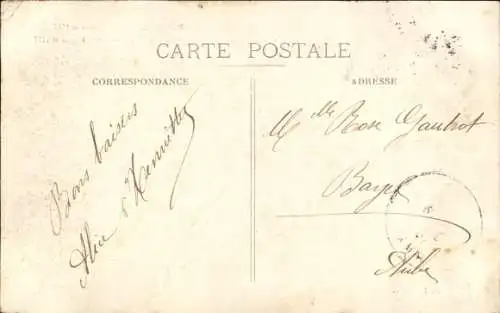 CARTE POSTALE
CORRESPONDANCE
Bons baisers
Alice & Henriette
ADRESSE
Mlle Rose Gauthot
Bayel
Aube